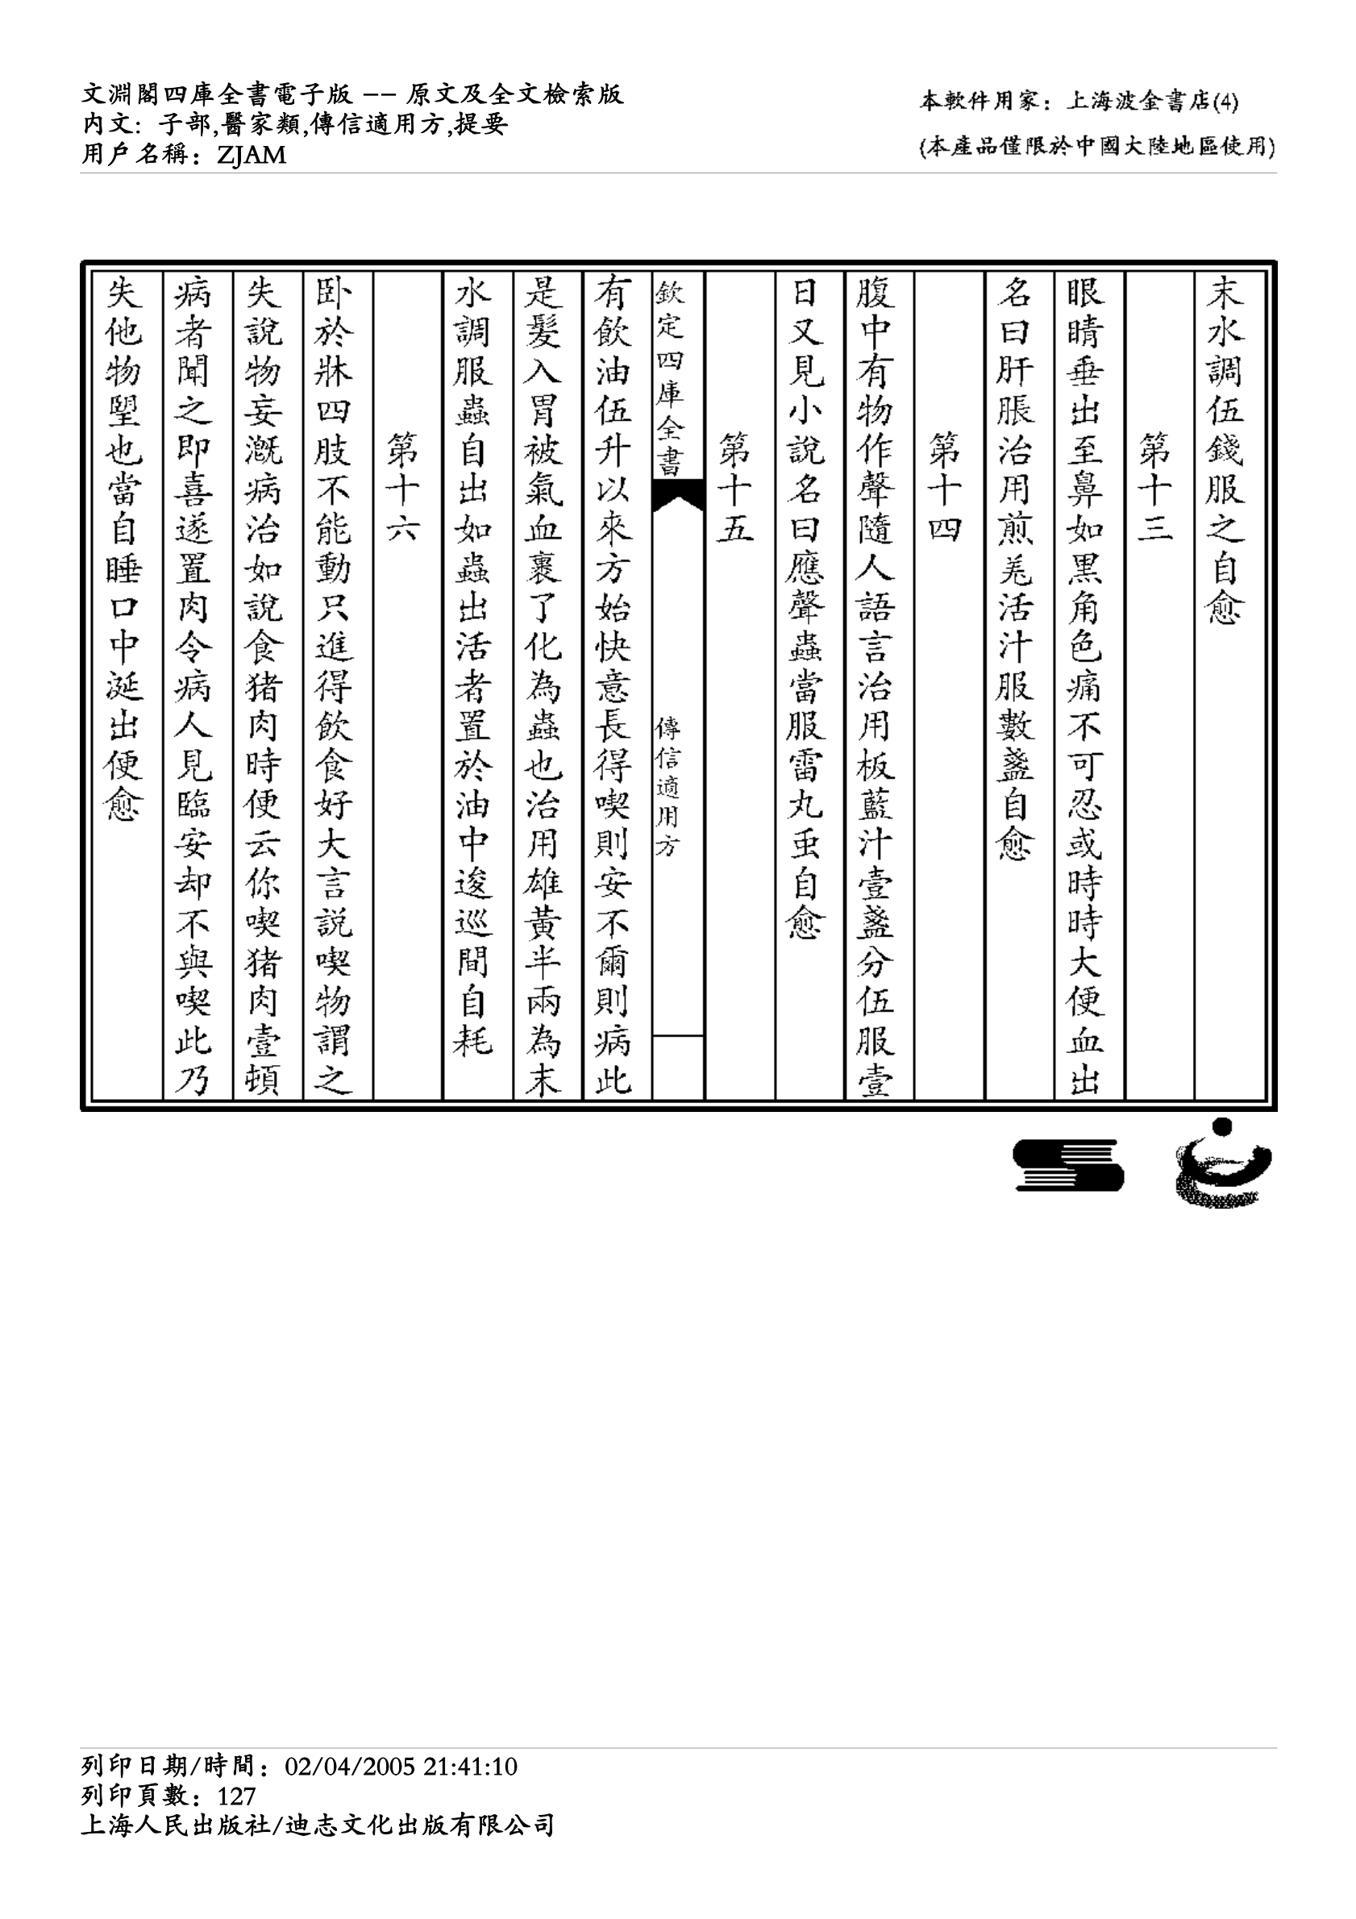 文淵閣四庫全書電子版 -- 原文及全文檢索版
内文: 子部,醫家類,傳信適用方,提要
用戶名稱: ZJAM
本軟件用家: 上海波金書店(4)
(本產品僅限於中國大陸地區使用)
末水調伍錢服之自愈
第十三
眼睛垂出至鼻如黑角色痛不可忍或時時大便血出
名曰肝脹治用煎羗活汁服數盞自愈
第十四
腹中有物作聲隨人語言治用板藍汁壹盞分伍服壹
日又見小說名曰應聲蟲當服雷丸䖝自愈
第十五
欽定四庫全書
傳信適用方
有飲油伍升以來方始快意長得喫則安不爾則病此
是髮入胃被氣血裹了化為蟲也治用雄黃半兩為末
水調服蟲自出如蟲出活者置於油中逡巡間自耗
第十六
卧於牀四肢不能動只進得飲食好大言說喫物謂之
失說物妄漑病治如說食猪肉時便云你喫猪肉壹頓
病者聞之即喜遂置肉令病人見臨安却不與喫此乃
失他物朢也當自睡口中涎出便愈
列印日期/時間: 02/04/2005 21:41:10
列印頁數: 127
上海人民出版社/迪志文化出版有限公司